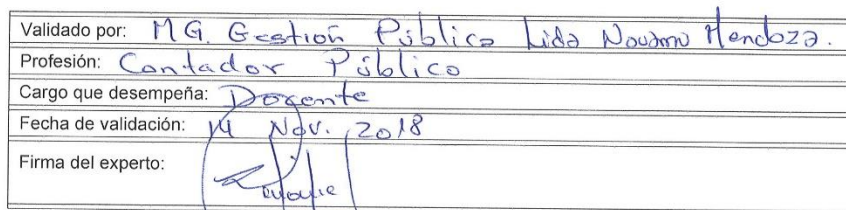 Validado por: MG. Gestión Pública Lida Navarro Mendoza.
Profesión: Contador Público
Cargo que desempeña: Docente
Fecha de validación: 14 Nov. 2018
Firma del experto: